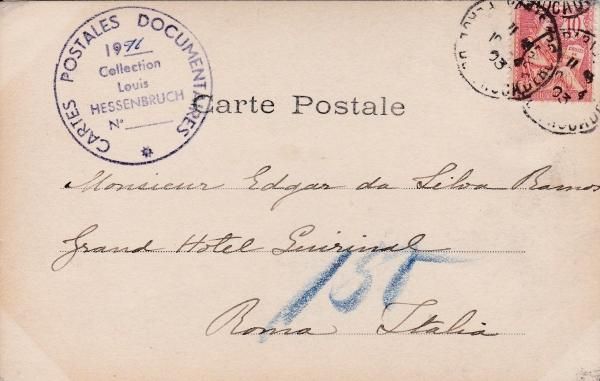 CARTES POSTALES DOCUMENTAIRES
1976
Collection
Louis
HESSENBRUCH
N°
Carte Postale
10
11
03
11
03
Monsieur Edgar da Silva Ramos
Grand Hotel Quirinal
155
Roma Italia